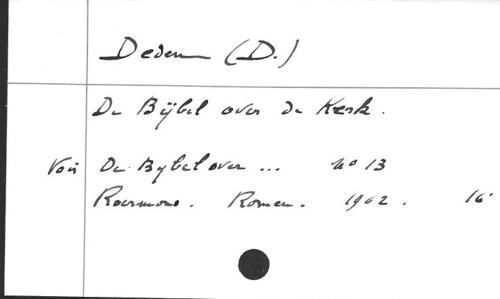 Deden (D.)
De Bijbel over de Kerk.
Voir De Bijbel over ... no 13
Roermond. Romen. 1962. 16°